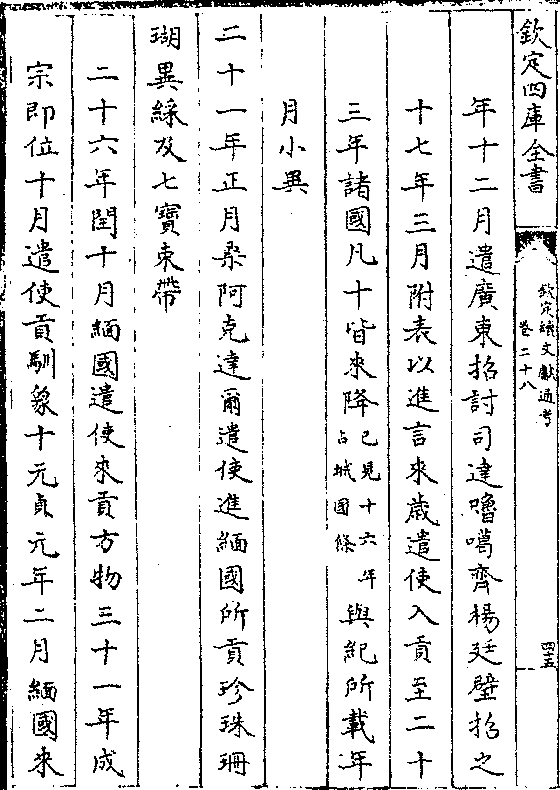 欽定四庫全書
欽定續文獻通考
卷二十八
四十五
年十二月遣廣東招討司達嚕噶齊楊廷璧招之
十七年三月附表以進言來歲遣使入貢至二十
三年諸國凡十皆來降已見十六年占城國條與紀所載年
月小異
二十一年正月桒阿克達爾遣使進緬國所貢珍珠珊
瑚異綵及七寶束帶
二十六年閏十月緬國遣使來貢方物三十一年成
宗即位十月遣使貢馴象十元貞元年二月緬國來